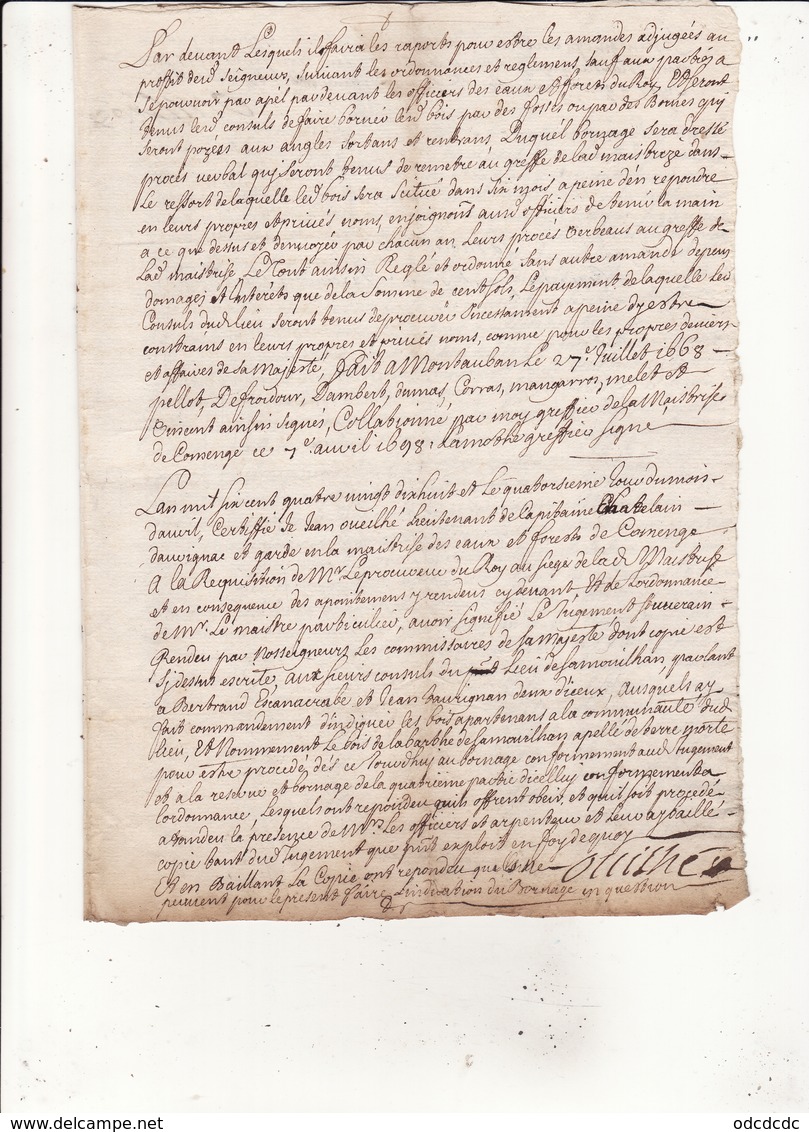 Par devant Lesquels il faira les raports pour estre les amandes adjugées au
profit desd Seigneurs, suivant les ordonnances et reglemens, sauf aux parties a
se pourvoir par apel pardevant les officiers des eaux et forets du Roy, Et seront
tenus lesd consuls de faire borner lesd bois par des fosses ou par des Bornes quy
seront pozées aux angles sortans et rentrans, Duquel bornage sera dressé
procés verbal quy seront tenus de remetre au greffe de lad maistreze dans
Le ressort de laquelle led bois sera scitué dans six mois a peine d'en repondre
en leurs propres et privés noms, enjoignons ausd officiers de tenir la main
a ce que dessus et d'envoyer par chacun an Leurs procés verbeaux au greffe de
Lad maistrise Le Tout ainsin Reglé et ordonné sans autre amande depens
domages et Interéts que de la Somme de cent sols, Le payement de laquelle les
Consuls dud Lieu seront tenus de procurer Incessament a peine dy estre
constrains en leurs propres et privés noms, comme pour les propres deniers
et affaires de sa Majesté, fait a Montauban Le 27e Juillet 1668
pellot, De froidour, Dambert, dumas, Corras, mangarros, melet et
Vincent ainsin signés, Collationné par moy greffier de la Maistrise
de Comenge ce 7e avril 1698. Lamothe greffier signé
Lan mil six cent quatre vingt dixhuit et Le quatorsieme Jour du mois
davril, Certiffie Je Jean oueilhé Lieutenant de Capitaine Chatelain
dauvignac et garde en la maistrise des eaux et forests de Comenge
A la Requisition de Mr Le procureur du Roy au siege de lad Maistrise
et en consequence des apointemens y rendeus cy devant, Et de Lordonnance
de Mr. Le maistre particulier, avoir signifié Le Jugement souverain
Rendeu par Nosseigneurs Les commissaires de sa majesté dont copie est
Sy dessus escrite, aux sieurs consuls du Lieu de Samouilhan, parlant
a Bertrand Escanacrabe et Jean Taurignan deux diceux, Ausquels ay
fait commandement d'indiquer les bois apartenans a la communauté dud
lieu, Et Nommement Le bois de la barthe de Samouilhan apellé de terre morte
pour estre procédé dés ce Jourdhuy au bornage conformement aud Jugement
et a la reserve et bornage de la quatrieme partie dicelluy conformement a
Lordonnance, Lesquels ont repondeu quils offrent obeir, et quil soit procédé
atandeu la presence de Mrs Les officiers et arpenteur et Leur ay baillé
copie tant dud Jugement que put exploit en foy de quoy
Et en Baillant La Copie ont repondeu que s ne Oueilhé
peuvent pour le present faire Lindication du Bornage en question
odcdcdc